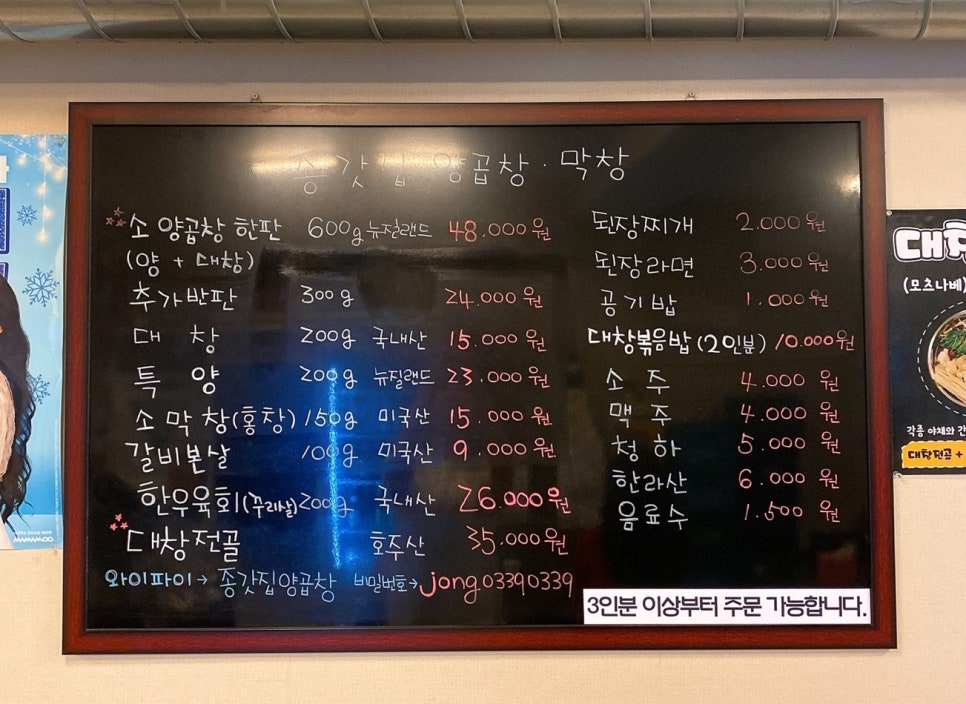 종갓집 양곱창·막창
소 양곱창 한판 600g 뉴질랜드 48.000원
(양 + 대창)
추가반판 300g 24.000원
대 창 200g 국내산 15.000원
특 양 200g 뉴질랜드 23.000원
소 막창(홍창) 150g 미국산 15.000원
갈비본살 100g 미국산 9.000원
한우육회(꾸리살) 200g 국내산 26.000원
대창전골 호주산 35.000원
와이파이→ 종갓집양곱창 비밀번호→ jong03390339
된장찌개 2.000원
된장라면 3.000원
공기밥 1.000원
대창볶음밥(2인분) 10.000원
소 주 4.000원
맥 주 4.000원
청 하 5.000원
한라산 6.000원
음료수 1.500원
3인분 이상부터 주문 가능합니다.
(모츠나베)
각종 야채와
대창전골 +